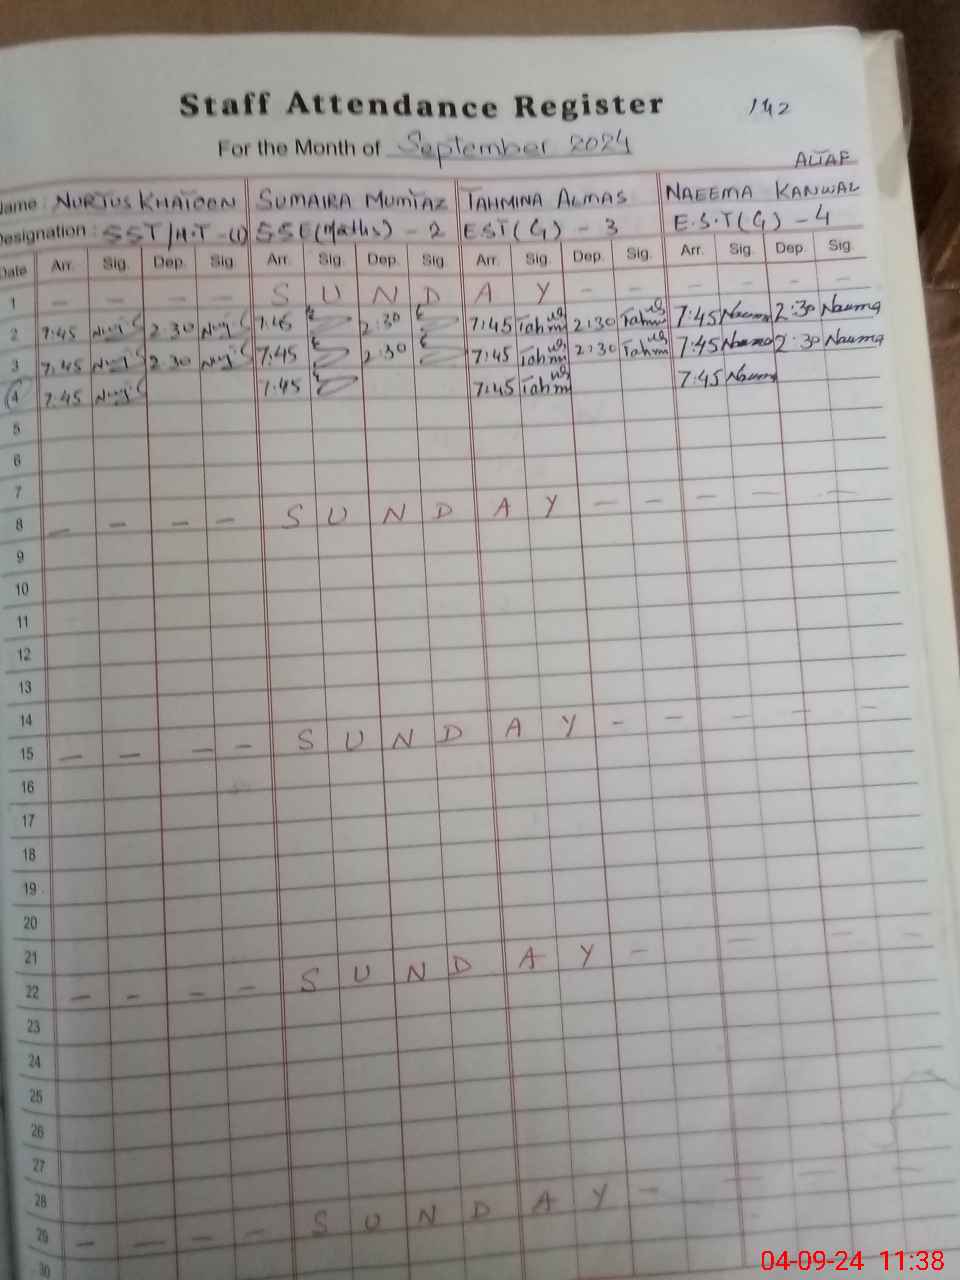 Staff Attendance Register 142
For the Month of September 2024
ALTAF
Name: NURJUS KHATOON SUMAIRA MUMTAZ TAHMINA ALMAS NAEEMA KANWAL
Designation: SST/H.T -(1) SSE(Maths) - 2 EST(G) - 3 E.S.T(G) - 4
Date Arr. Sig. Dep. Sig. Arr. Sig. Dep. Sig. Arr. Sig. Dep. Sig. Arr. Sig. Dep. Sig.
1 - - - - S U N D A Y - - - - - -
2 7:45 2:30 7:45 2:30 7:45 Tahmina 2:30 Tahmina 7:45 Naema 2:30 Naema
3 7:45 2:30 7:45 2:30 7:45 Tahmina 2:30 Tahmina 7:45 Naema 2:30 Naema
4 7:45 7:45 7:45 Tahmina 7:45 Naema
5
6
7
8 - - - - S U N D A Y - - - - -
9
10
11
12
13
14
15 - - - - S U N D A Y - - - - -
16
17
18
19
20
21
22 - - - - S U N D A Y - - - -
23
24
25
26
27
28
29 - - - - S U N D A Y - - - -
30
04-09-24 11:38